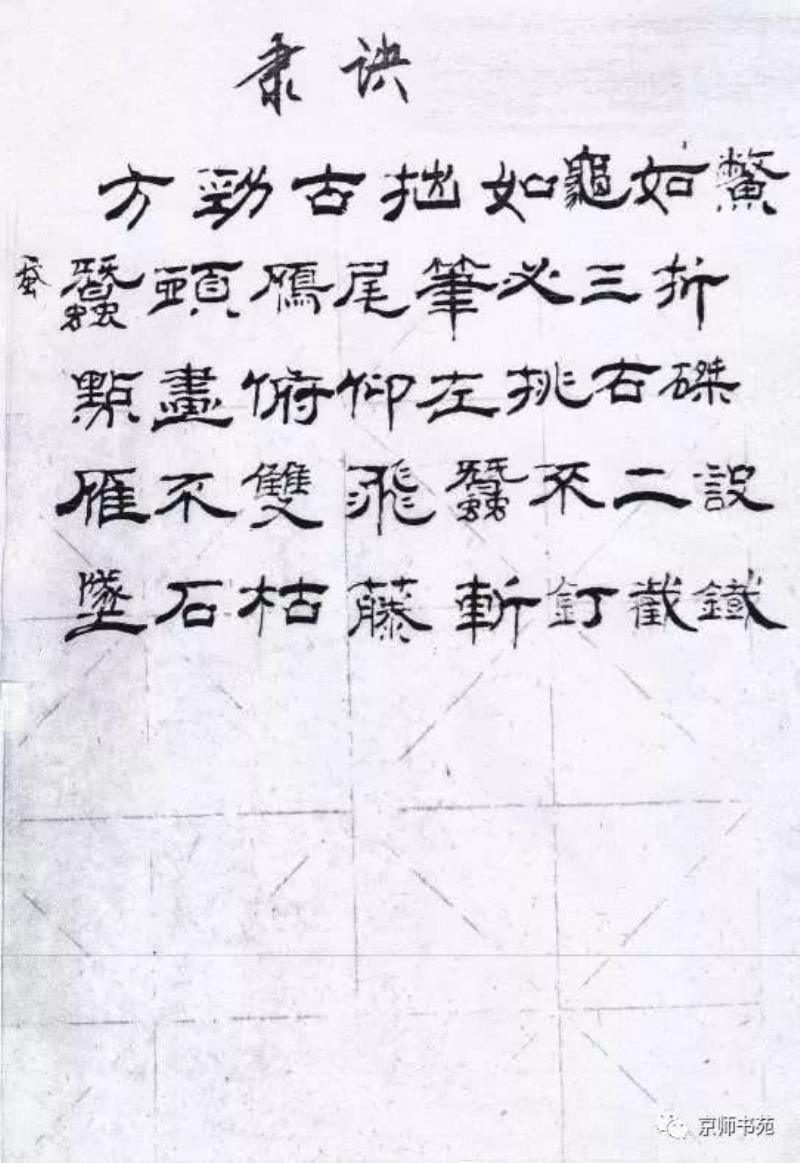 隶诀
方勁古拙如龜如鱉
蚕
蠶頭鴈尾筆必三折
點畫俯仰左挑右磔
雁不雙飛蠶不二設
墜石枯藤斬釘截鐵
京师书苑